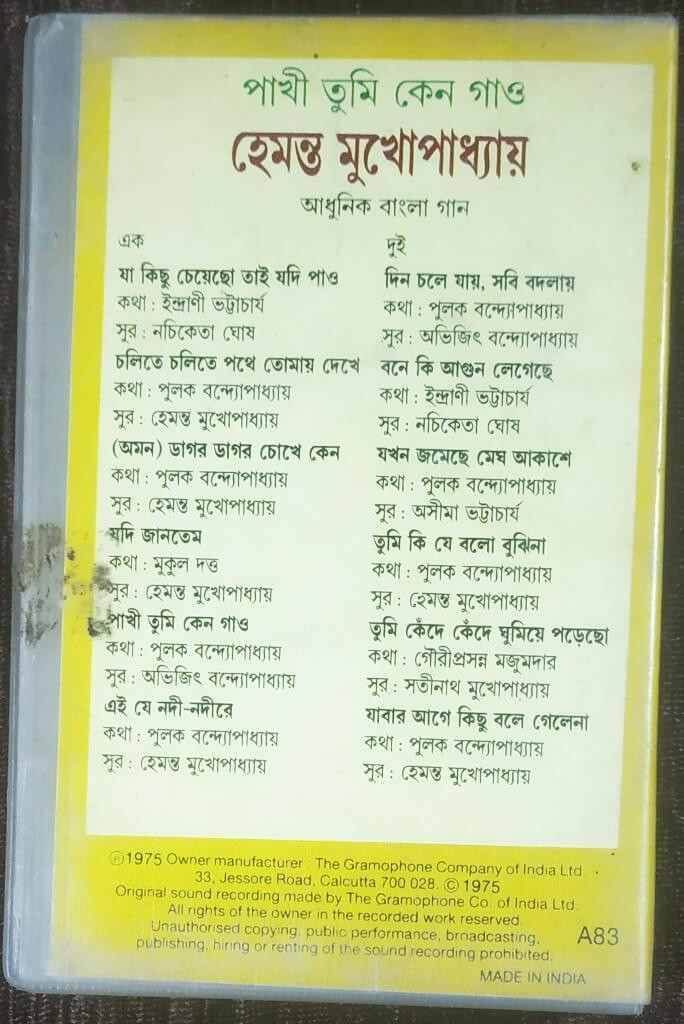 পাখী তুমি কেন গাও
হেমন্ত মুখোপাধ্যায়
আধুনিক বাংলা গান
এক
যা কিছু চেয়েছো তাই যদি পাও
কথা : ইন্দ্রাণী ভট্টাচার্য
সুর : নচিকেতা ঘোষ
চলিতে চলিতে পথে তোমায় দেখে
কথা : পুলক বন্দ্যোপাধ্যায়
সুর : হেমন্ত মুখোপাধ্যায়
(অমন) ডাগর ডাগর চোখে কেন
কথা : পুলক বন্দ্যোপাধ্যায়
সুর : হেমন্ত মুখোপাধ্যায়
যদি জানতেম
কথা : মুকুল দত্ত
সুর : হেমন্ত মুখোপাধ্যায়
পাখী তুমি কেন গাও
কথা : পুলক বন্দ্যোপাধ্যায়
সুর : অভিজিৎ বন্দ্যোপাধ্যায়
এই যে নদী-নদীরে
কথা : পুলক বন্দ্যোপাধ্যায়
সুর : হেমন্ত মুখোপাধ্যায়
দুই
দিন চলে যায়, সবি বদলায়
কথা : পুলক বন্দ্যোপাধ্যায়
সুর : অভিজিৎ বন্দ্যোপাধ্যায়
বনে কি আগুন লেগেছে
কথা : ইন্দ্রাণী ভট্টাচার্য
সুর : নচিকেতা ঘোষ
যখন জমেছে মেঘ আকাশে
কথা : পুলক বন্দ্যোপাধ্যায়
সুর : অসীমা ভট্টাচার্য
তুমি কি যে বলো বুঝিনা
কথা : পুলক বন্দ্যোপাধ্যায়
সুর : হেমন্ত মুখোপাধ্যায়
তুমি কেঁদে কেঁদে ঘুমিয়ে পড়েছো
কথা : গৌরীপ্রসন্ন মজুমদার
সুর : সতীনাথ মুখোপাধ্যায়
যাবার আগে কিছু বলে গেলেনা
কথা : পুলক বন্দ্যোপাধ্যায়
সুর : হেমন্ত মুখোপাধ্যায়
℗1975 Owner manufacturer : The Gramophone Company of India Ltd.
33, Jessore Road, Calcutta 700 028. © 1975
Original sound recording made by The Gramophone Co. of India Ltd.
All rights of the owner in the recorded work reserved.
Unauthorised copying, public performance, broadcasting,
publishing, hiring or renting of the sound recording prohibited.
A83
MADE IN INDIA